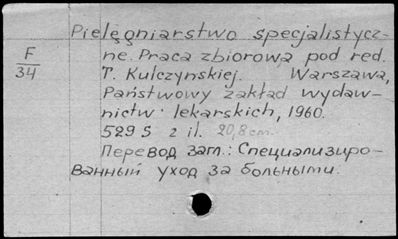 Pielęgniarstwo specjalistycz-
ne. Praca zbiorowa pod red.
F
34
T. Kulczynskiej. Warszawa,
Państwowy zakład wydaw-
nictw lekarskich, 1960.
529 S z il. 20,8 cm.
Перевод загл.: Специализиро-
ванный уход за больными.